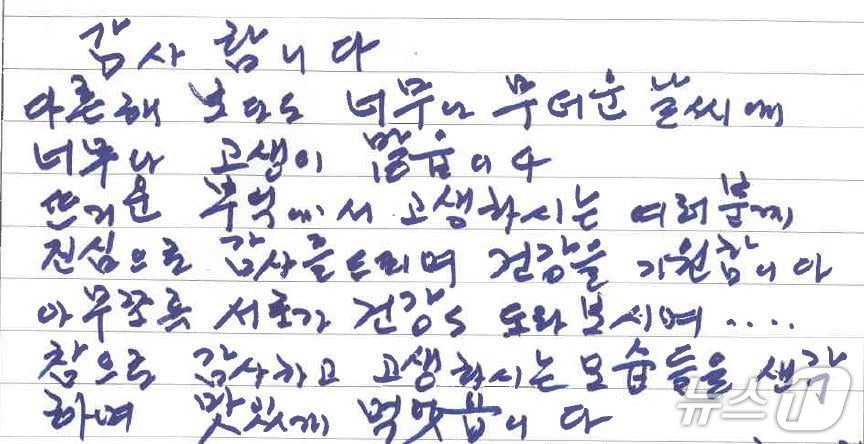 감사 합니다
다른해 보다도 너무나 무더운 날씨에
너무나 고생이 많습니다
뜨거운 부엌에서 고생하시는 여러분께
진심으로 감사를 드리며 건강을 기원합니다
아무쪼록 서로가 건강도 돌봐 보시며....
참으로 감사하고 고생하시는 모습들을 생각
하며 맛있게 먹었습니다
뉴스1